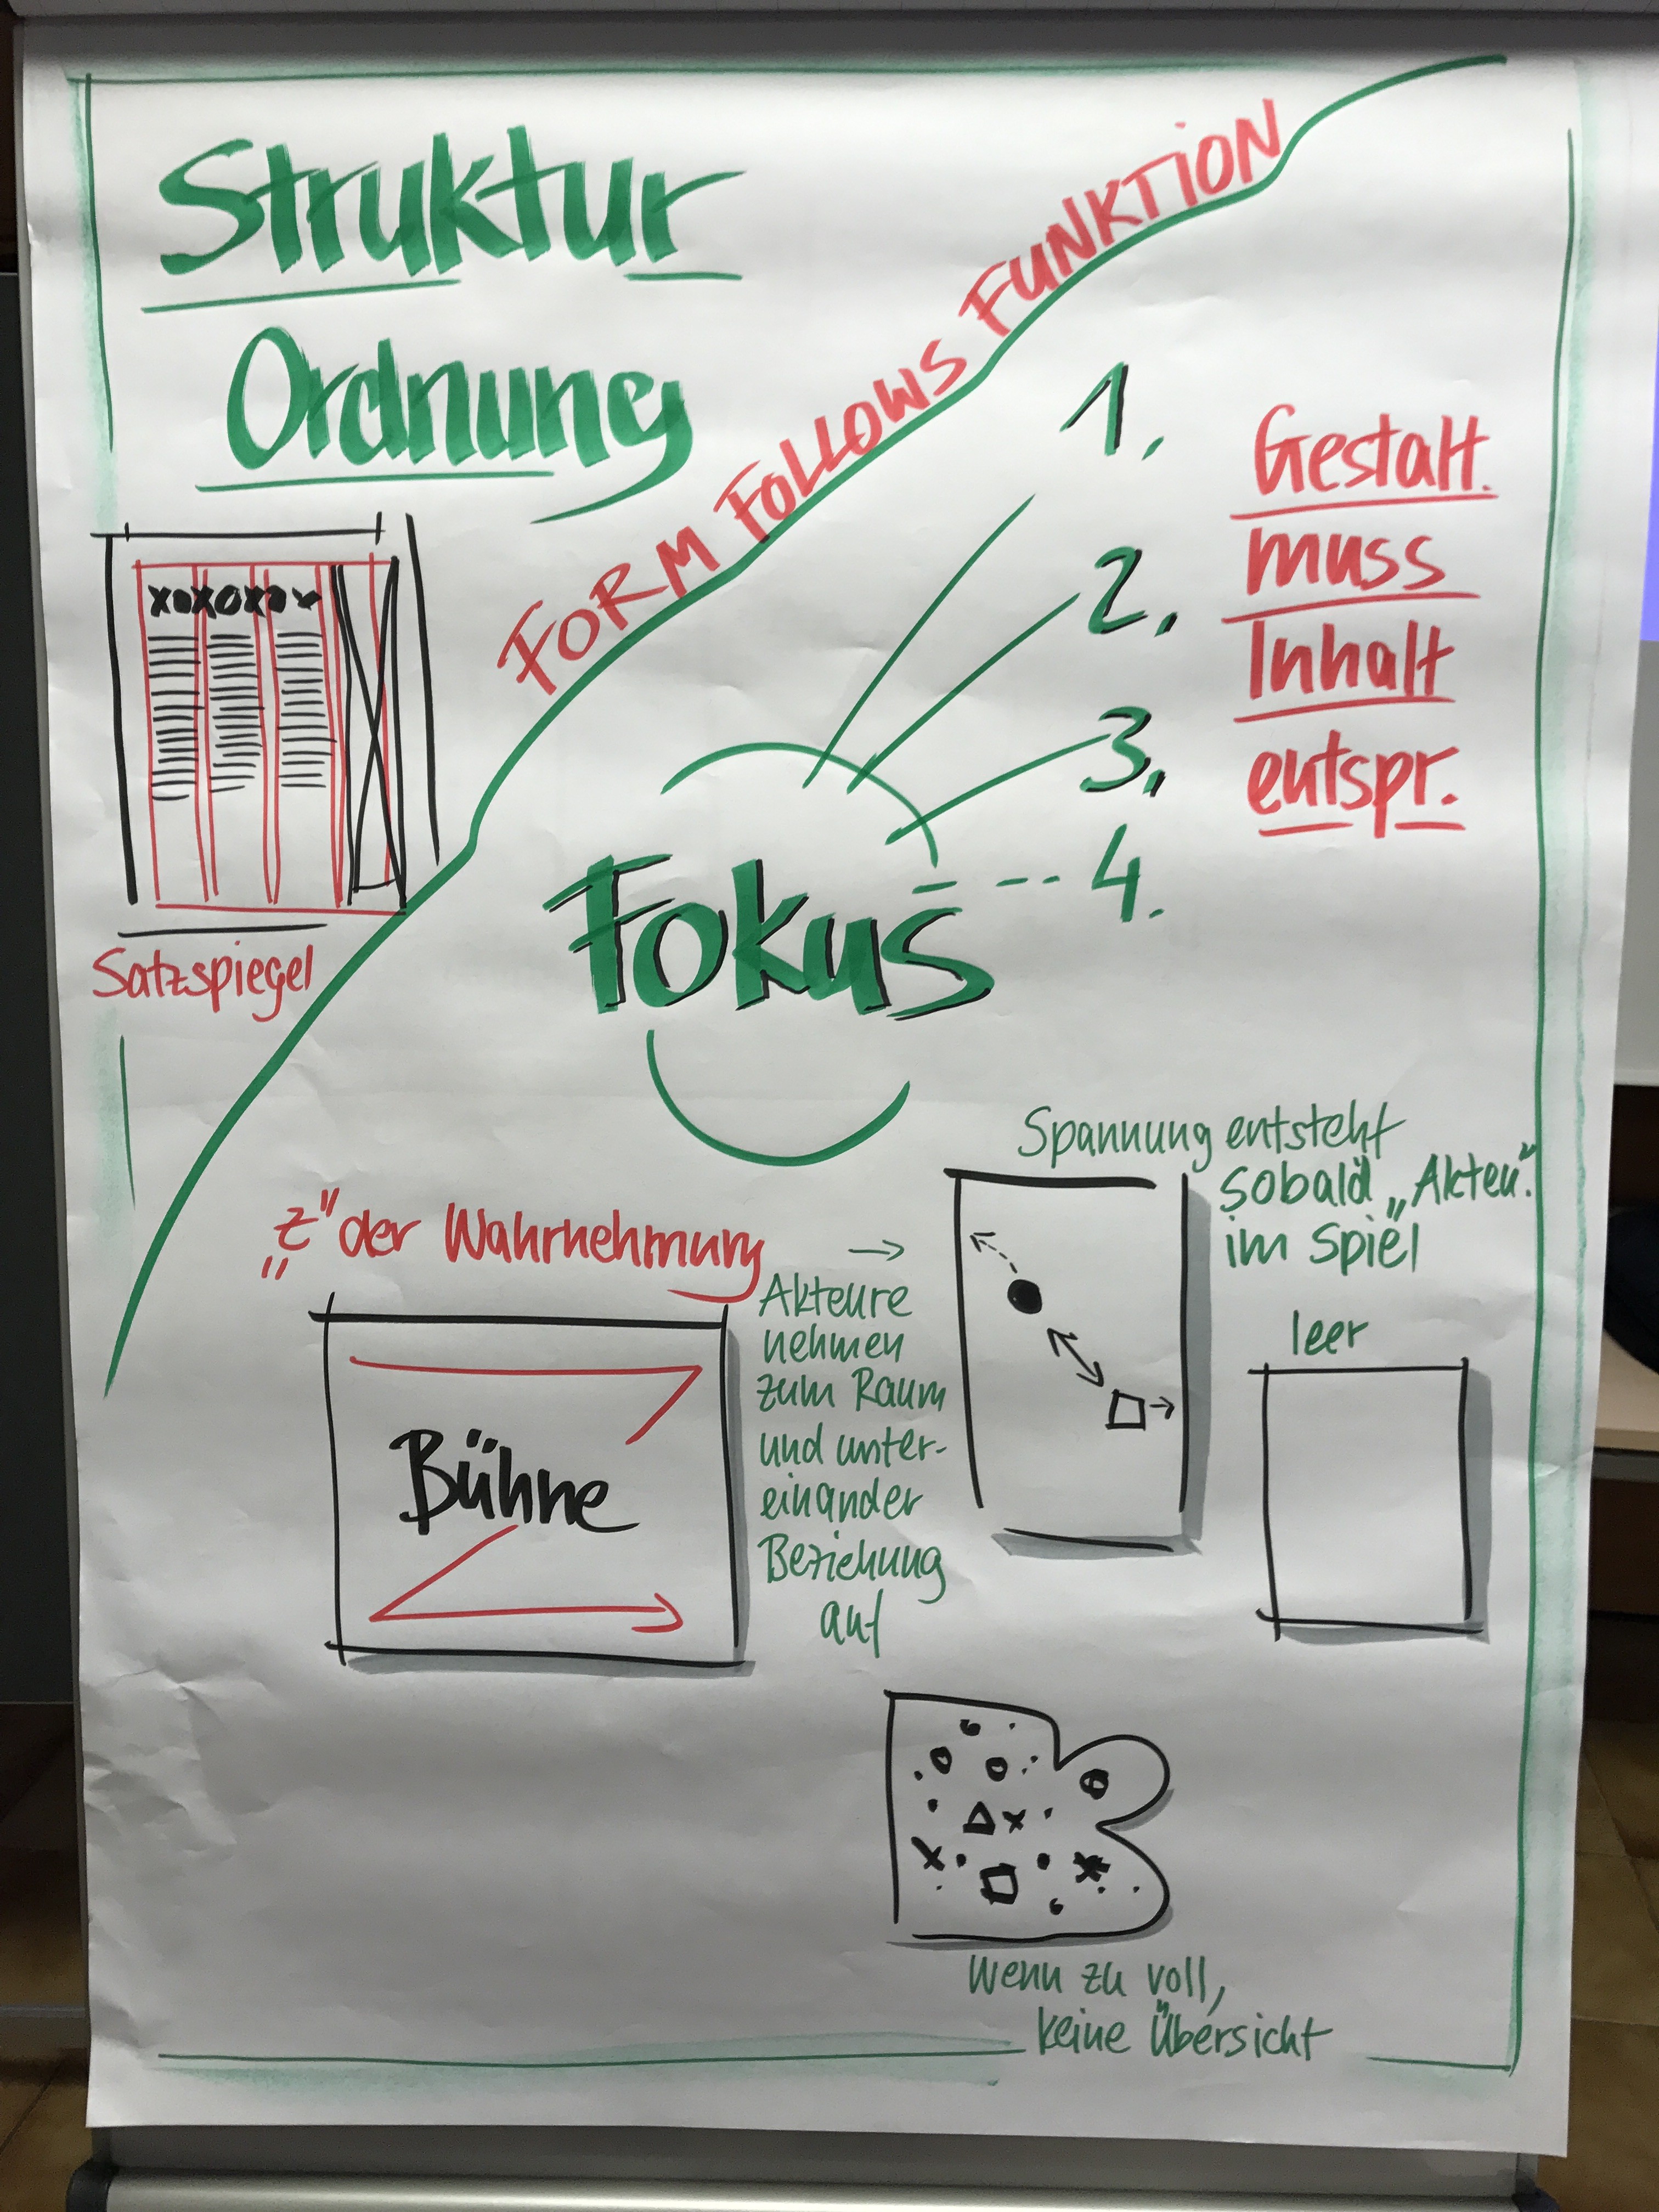 Struktur
Ordnung
FORM FOLLOWS FUNKTION
Satzspiegel
1.
2.
3.
4.
Gestalt.
muss
Inhalt
entspr.
Fokus
Spannung entsteht
sobald „Akteu.“
im Spiel
„Z“ der Wahrnehmung
Bühne
→ Akteure
nehmen
zum Raum
und unter-
einander
Beziehung
auf
leer
Wenn zu voll,
keine Übersicht